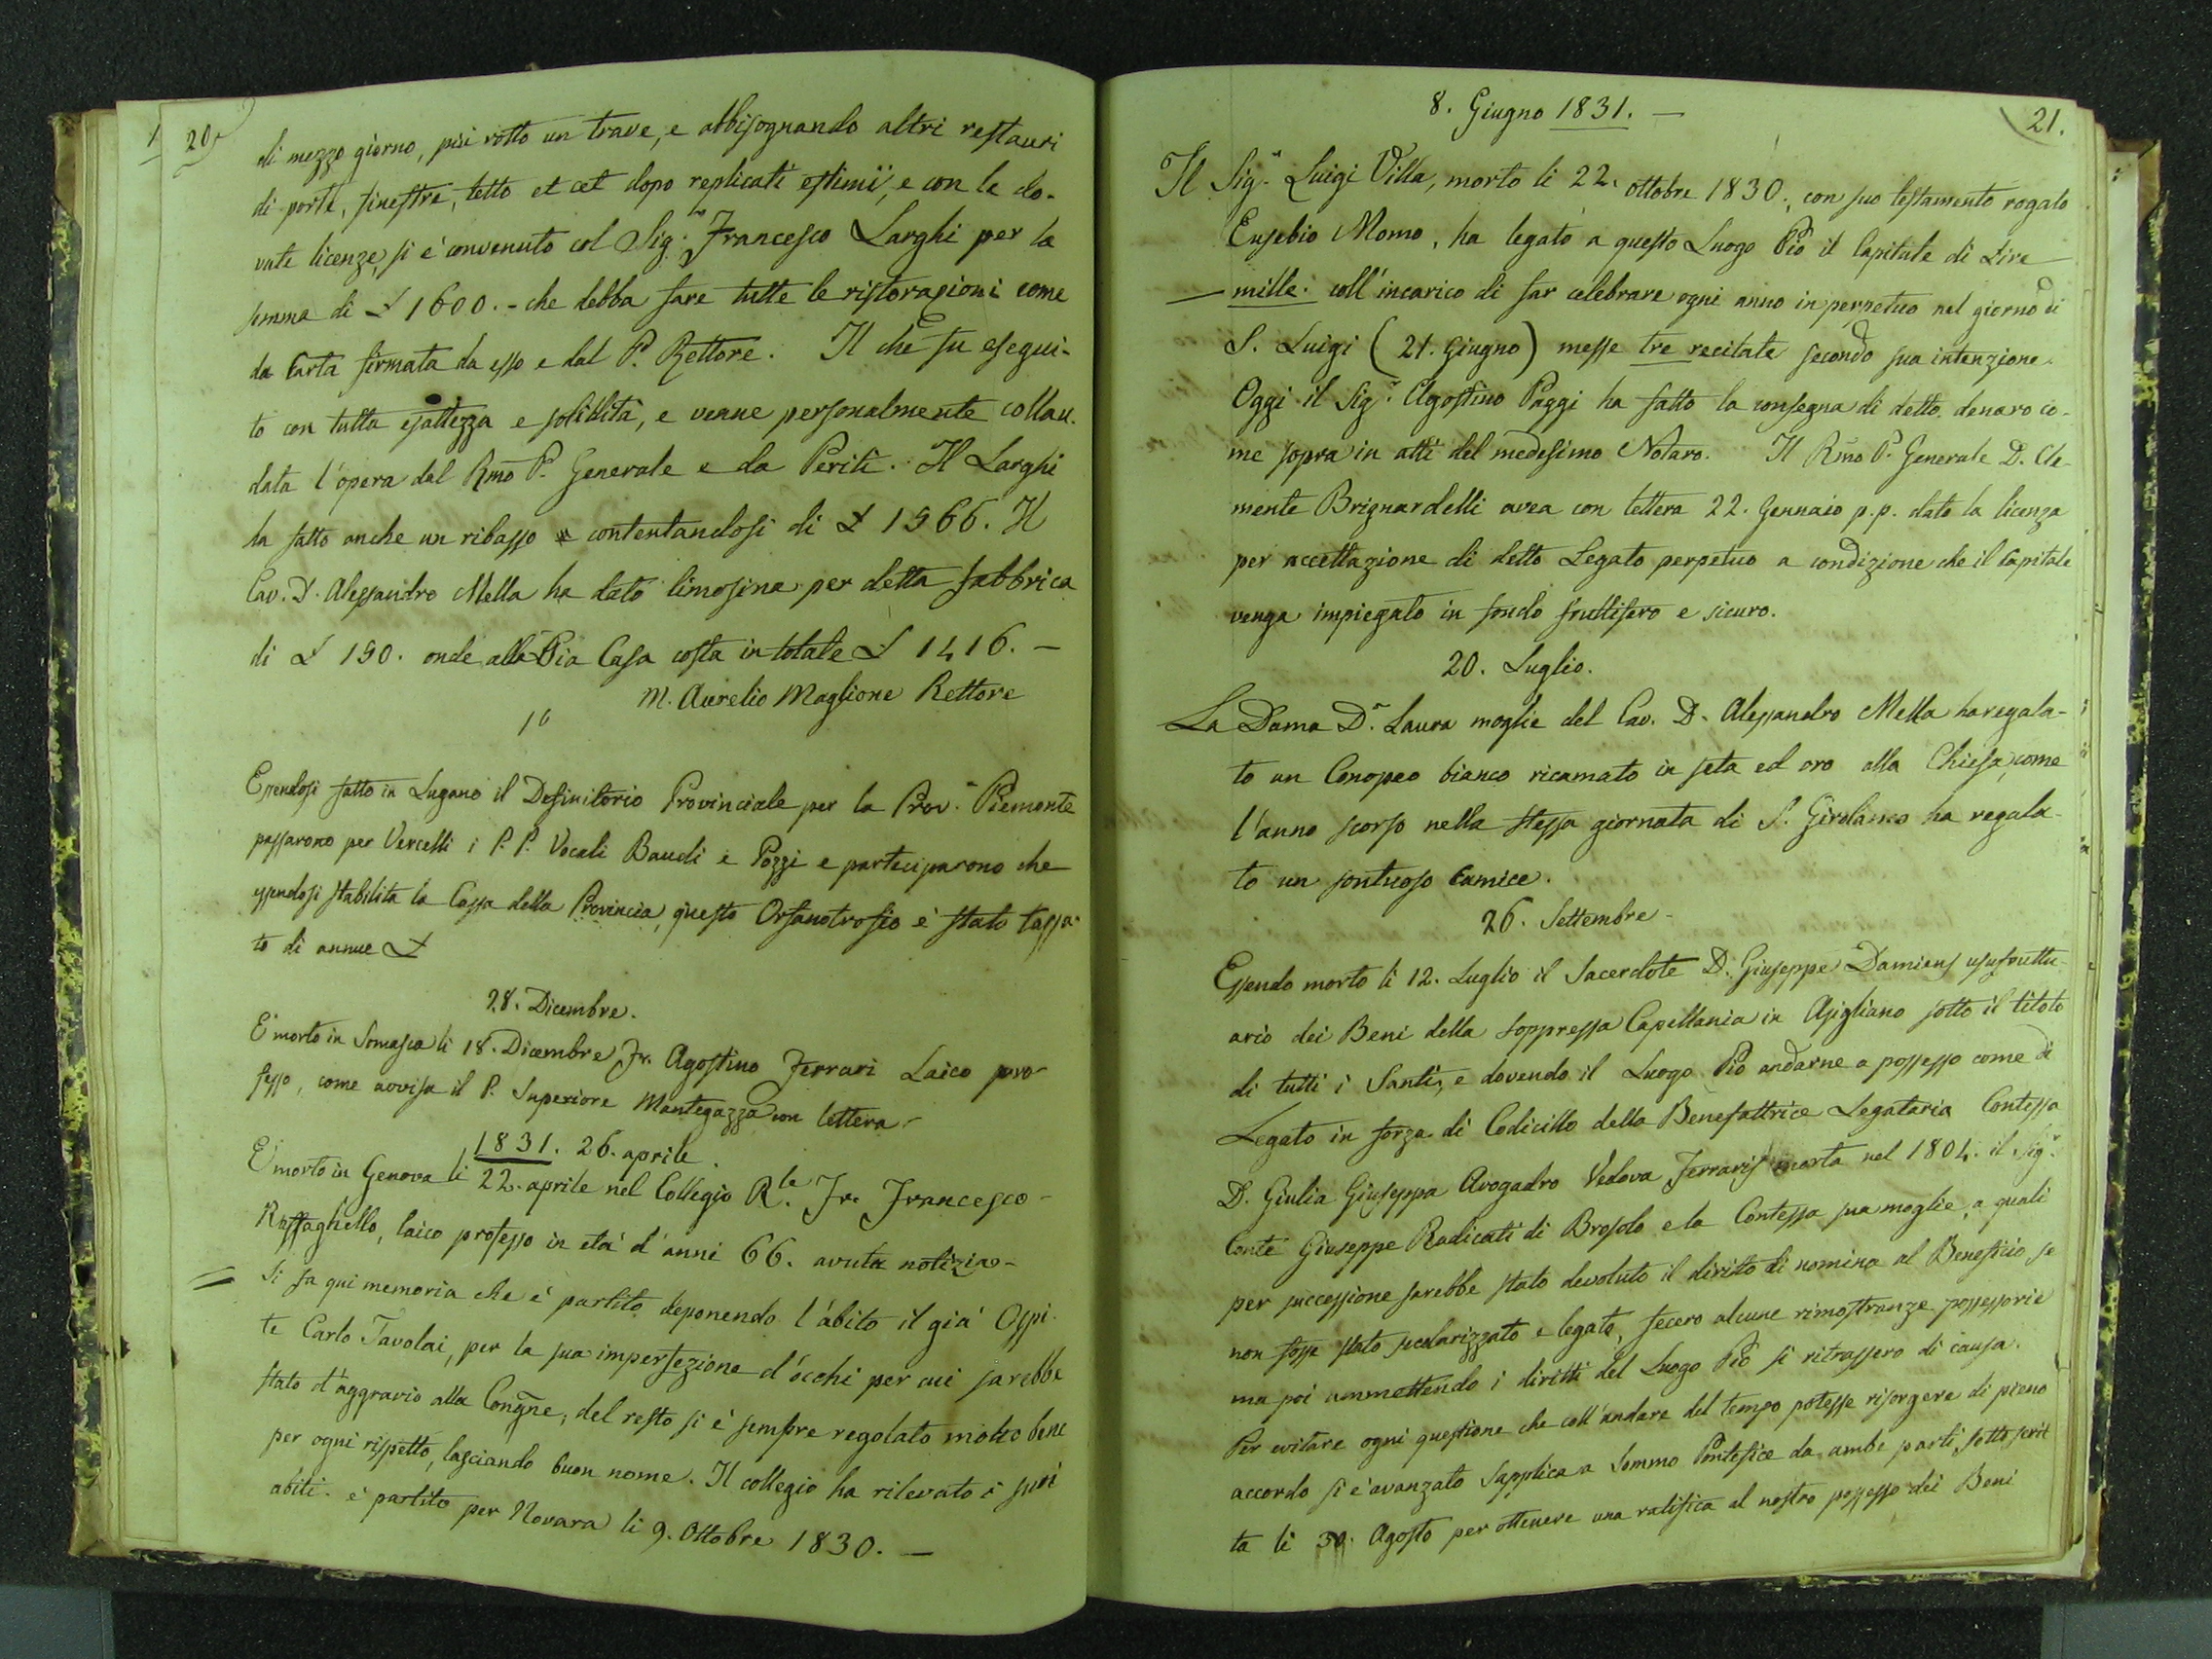 20
di mezzo giorno, più rotto un trave, e abbisognando altri restauri
di porte, finestre, tetto et cet dopo replicati estimii, e con le do-
vute licenze, si è convenuto col Sig.r Francesco Larghi per la
somma di £ 1600. - che debba fare tutte le ristorazioni come
da Carta firmata da esso e dal P. Rettore. Il che fu esegui-
to con tutta esattezza e solidità, e venne personalmente collau-
data l'opera dal Rmo P. Generale e da Periti. Il Larghi
ha fatto anche un ribasso contentandosi di £ 1566. Il
Cav. D. Alessandro Mella ha dato limosina per detta fabbrica
di £ 150. onde alla Pia Casa costa in totale £ 1416. —
M. Aurelio Maglione Rettore
Essendosi fatto in Lugano il Definitorio Provinciale per la Prov.a Piemonte
passarono per Vercelli i P. P. Vocali Baudi e Pozzi e parteciparono che
essendosi stabilita la Cassa della Provincia, questo Orfanotrofio è stato tassa-
to di annue £
28. Dicembre.
È morto in Somasca li 18. Dicembre Fr. Agostino Ferrari Laico pro-
fesso, come avvisa il P. Superiore Mantegazza con lettera.
1831. 26. aprile.
È morto in Genova li 22. aprile nel Collegio R.le Fr. Francesco
Raffaghello, laico professo in età d'anni 66. avuta notizia -
= Si fa qui memoria che è partito deponendo l'abito il già Ospi-
te Carlo Tavolai, per la sua imperfezione d'occhi per cui sarebbe
stato d'aggravio alla Congne, del resto si è sempre regolato molto bene
per ogni rispetto, lasciando buon nome. Il collegio ha rilevato i suoi
abiti. è partito per Novara li 9. Ottobre 1830. —
21.
8. Giugno 1831. —
Il Sig.r Luigi Villa, morto li 22. ottobre 1830., con suo testamento rogato
Eusebio Momo, ha legato a questo Luogo Pio il Capitale di Lire
— mille. coll'incarico di far celebrare ogni anno in perpetuo nel giorno di
S. Luigi (21. Giugno) messe tre recitate secondo sua intenzione.
Oggi il Sig.r Agostino Paggi ha fatto la consegna di detto denaro co-
me sopra in atti del medesimo Notaro. Il Rmo P. Generale D. Cle-
mente Brignardelli avea con lettera 22. Gennaio p.p. dato la licenza
per accettazione di detto Legato perpetuo a condizione che il Capitale
venga impiegato in fondo fruttifero e sicuro.
20. Luglio.
La Dama D.a Laura moglie del Cav. D. Alessandro Mella ha regala-
to un Conopeo bianco ricamato in seta ed oro alla Chiesa, come
l'anno scorso nella stessa giornata di S. Girolamo ha regala-
to un sontuoso Camice.
26. Settembre -
Essendo morto li 12. Luglio il Sacerdote D. Giuseppe Damiens usufruttu-
ario dei Beni della soppressa Capellania in Asigliano sotto il titolo
di tutti i Santi, e dovendo il Luogo Pio andarne a possesso come di
Legato in forza di Codicillo della Benefattrice Legataria Contessa
D. Giulia Giuseppa Avogadro Vedova Ferraris morta nel 1804. il Sig.r
Conte Giuseppe Radicati di Brosolo e la Contessa sua moglie, a quali
per successione sarebbe stato devoluto il diritto di nomina al Beneficio se
non fosse stato secolarizzato e legato, fecero alcune rimostranze possessorie
ma poi ammettendo i diritti del Luogo Pio si ritrassero di causa.
Per evitare ogni questione che coll'andare del tempo potesse risorgere di pieno
accordo si è avanzato Supplica a Sommo Pontefice da ambe parti sottoscrit
ta li 30. Agosto per ottenere una ratifica al nostro possesso dei Beni